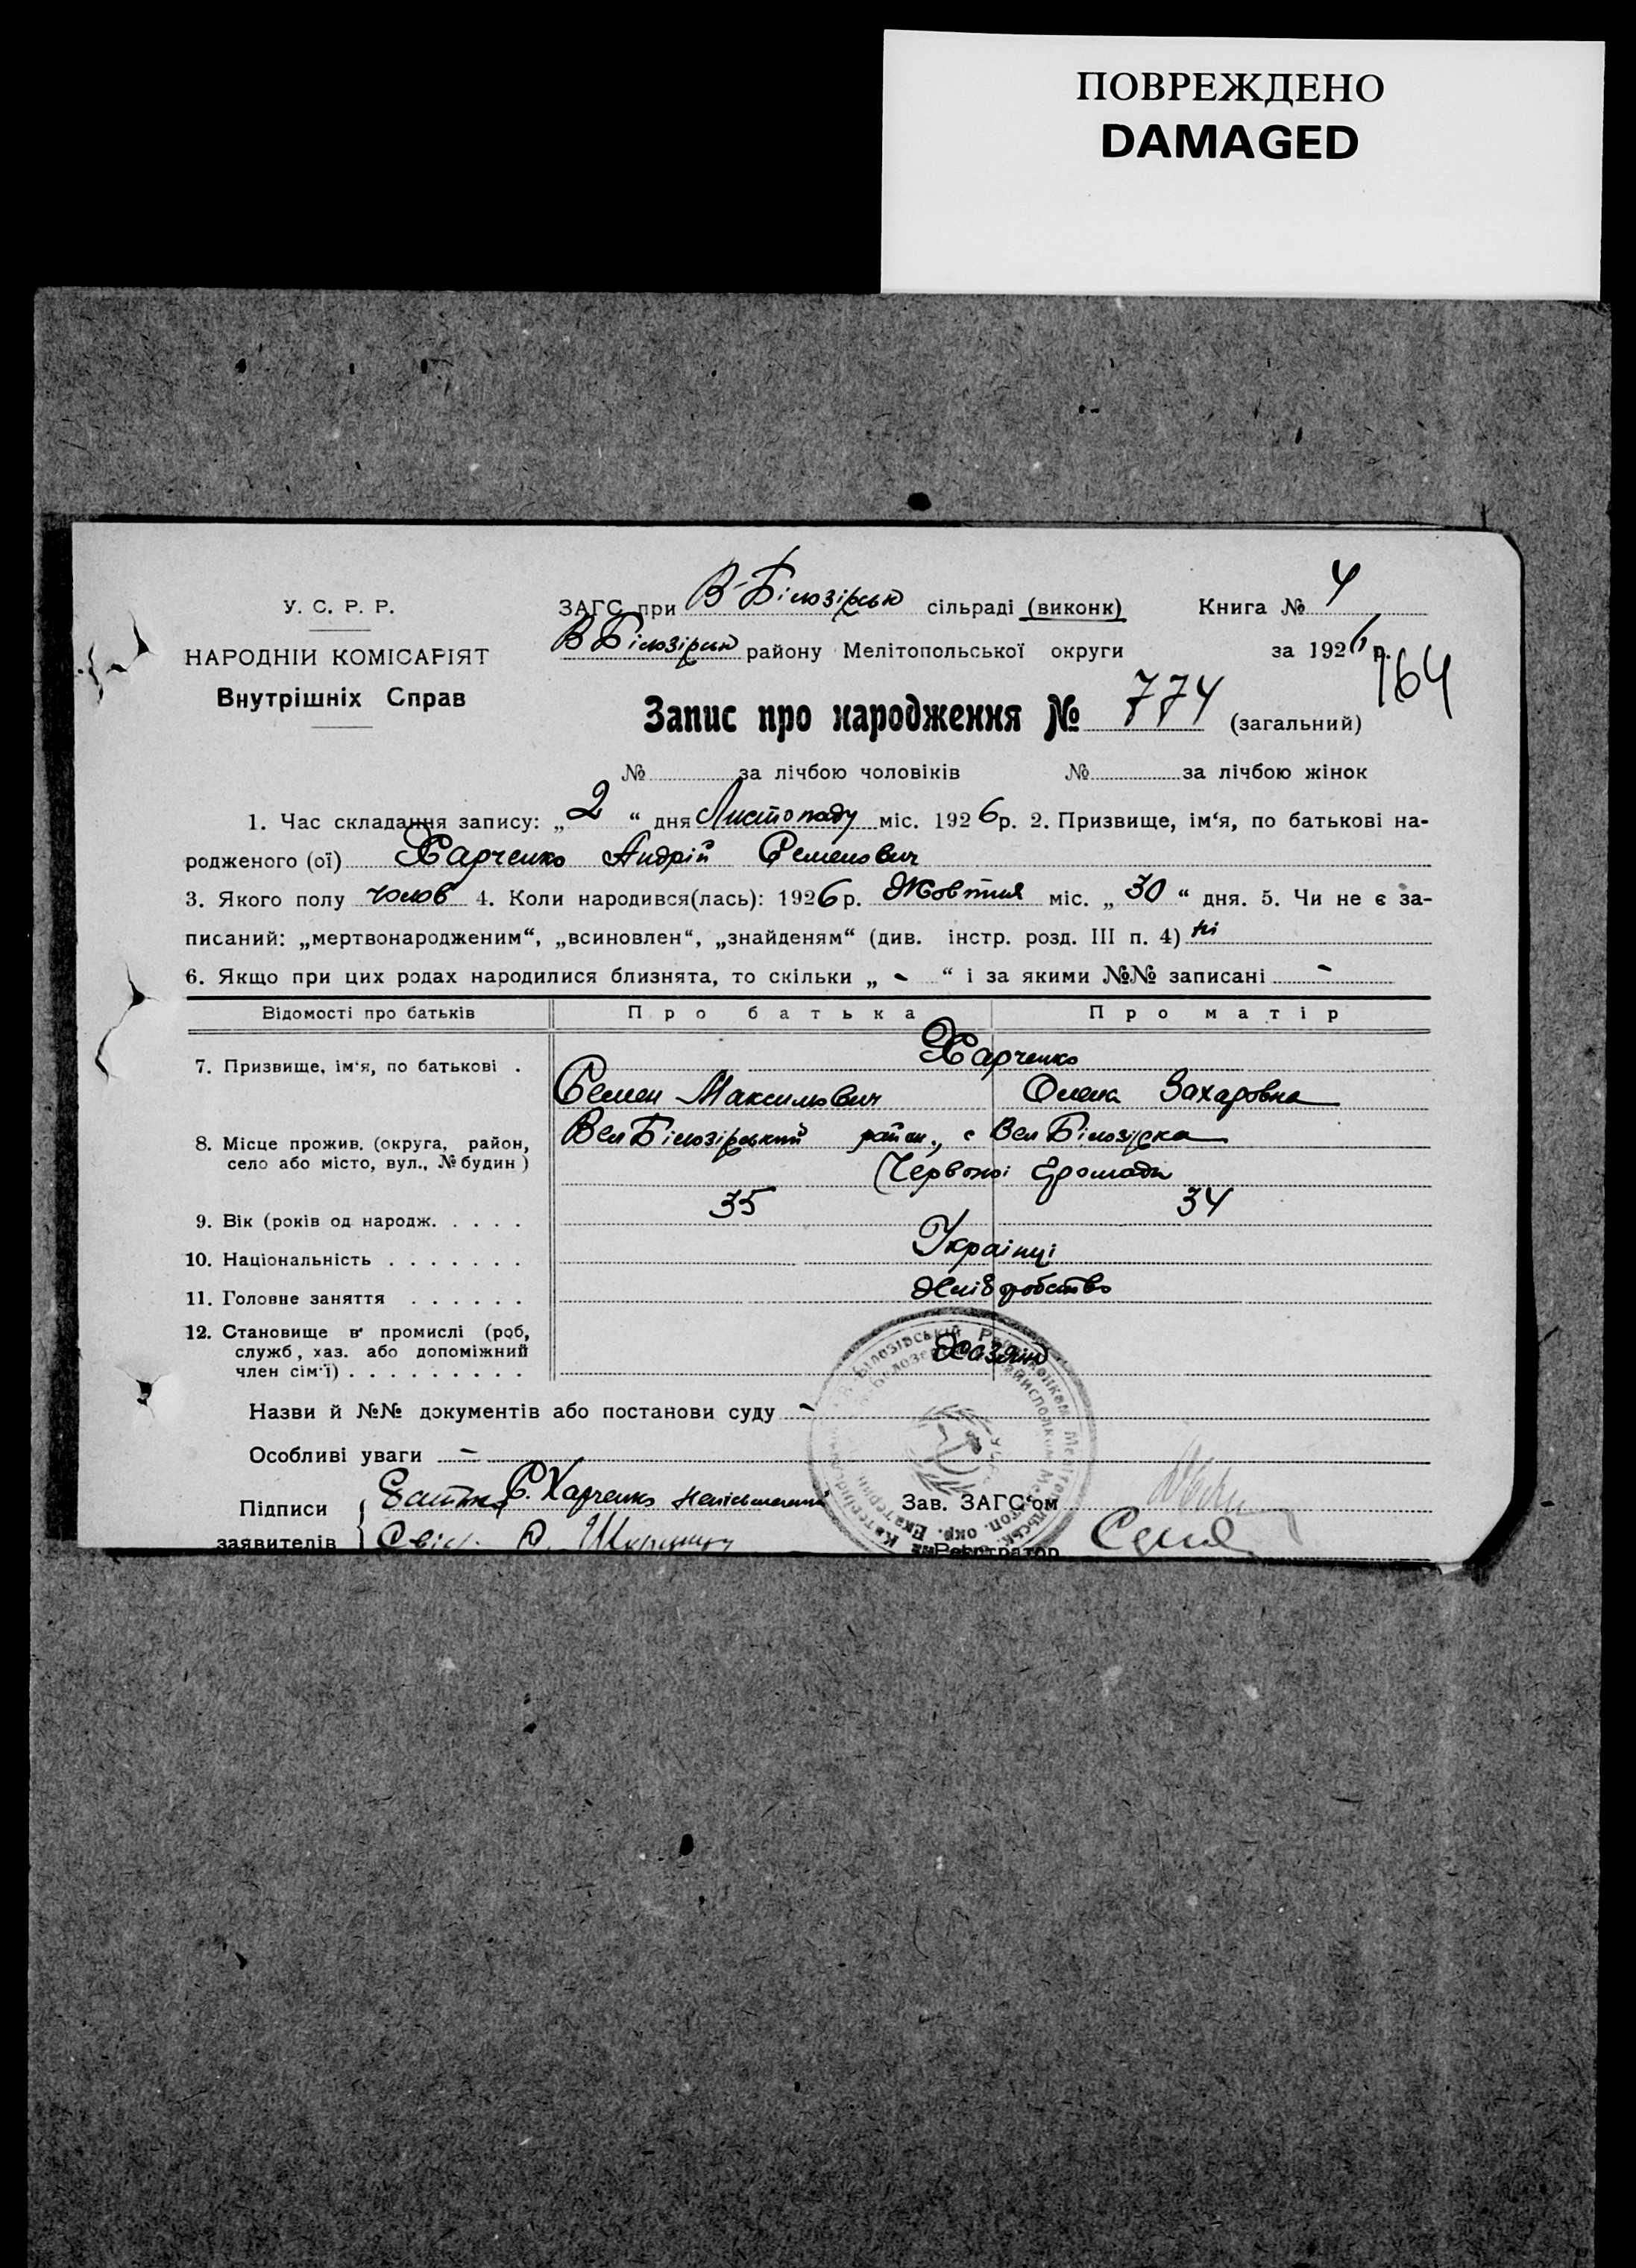 ПОВРЕЖДЕНО
DAMAGED
У. С. Р. Р.
НАРОДНІЙ КОМІСАРІЯТ
Внутрішніх Справ
ЗАГС при В-Білозірськ сільраді (виконк) Книга № 4
В Білозірськ району Мелітопольської округи за 1926 р.
164
Запис про народження № 774 (загальний)
№ за лічбою чоловіків № за лічбою жінок
1. Час складання запису: „2“ дня Листопаду міс. 1926 р. 2. Призвище, ім'я, по батькові на-
родженого (ої) Харченко Андрій Семенович
3. Якого полу чолов 4. Коли народився(лась): 1926 р. Жовтня міс. „30“ дня. 5. Чи не є за-
писаний: „мертвонародженим“, „всиновлен“, „знайденям“ (див. інстр. розд. III п. 4) ні
6. Якщо при цих родах народилися близнята, то скільки „-“ і за якими №№ записані -
Відомості про батьків Про батька Про матір
7. Призвище, ім'я, по батькові . Харченко
Семен Максимович Олена Захаровна
8. Місце прожив. (округа, район, село або місто, вул., № будин) Вел Білозірський район, с Вел Білозірка
Червоної Громади
9. Вік (років од народж. . . . . 35 34
10. Національність . . . . . . . Українці
11. Головне заняття . . . . . . Хліборобство
12. Становище в' промислі (роб, служб, хаз. або допоміжний член сім'ї) . . . . . . . . . Хазяїн
Назви й №№ документів або постанови суду -
Особливі уваги -
Підписи Батько С. Харченко Зав. ЗАГС'ом
заявителів Свід. Реєстратор